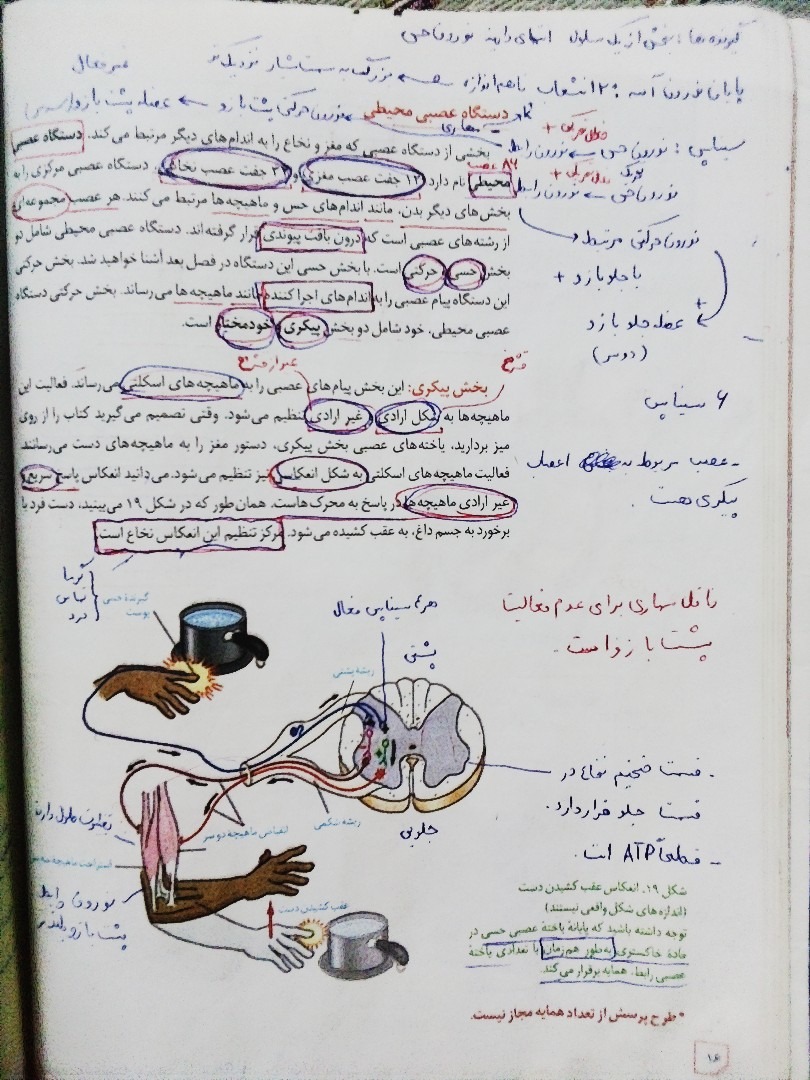 گیرنده ها: بخشی از یک سلول انتهای دارینه نورون حسی
غیرفعال
دستگاه عصبی محیطی
بخشی از دستگاه عصبی که مغز و نخاع را به اندام‌های دیگر مرتبط می‌کند، دستگاه عصبی
۸۶ عصب
محیطی نام دارد. ۱۲ جفت عصب مغزی و ۳۱ جفت عصب نخاعی، دستگاه عصبی مرکزی را به
بخش‌های دیگر بدن، مانند اندام‌های حس و ماهیچه‌ها مرتبط می‌کنند. هر عصب مجموعه‌ای
از رشته‌های عصبی است که درون بافت پیوندی قرار گرفته‌اند. دستگاه عصبی محیطی شامل دو
بخش حسی و حرکتی است. با بخش حسی این دستگاه در فصل بعد آشنا خواهید شد. بخش حرکتی
این دستگاه پیام عصبی را به اندام‌های اجرا کننده مانند ماهیچه‌ها می‌رساند. بخش حرکتی دستگاه
عصبی محیطی، خود شامل دو بخش پیکری و خودمختار است.
سیناپس: نورون حسی نورون رابط
نورون حسی نورون رابط
نورون حرکتی مرتبط
با جلو بازو +
عضله جلو بازو
(دوسر)
۶ سیناپس
- عصب مربوط به اعصاب
پیکری هست.
بخش پیکری: این بخش پیام‌های عصبی را به ماهیچه‌های اسکلتی می‌رساند. فعالیت این
ماهیچه‌ها به شکل ارادی و غیر ارادی تنظیم می‌شود. وقتی تصمیم می‌گیرید کتاب را از روی
میز بردارید، یاخته‌های عصبی بخش پیکری، دستور مغز را به ماهیچه‌های دست می‌رسانند.
فعالیت ماهیچه‌های اسکلتی به شکل انعکاسی نیز تنظیم می‌شود. می‌دانید انعکاس پاسخ سریع و
غیر ارادی ماهیچه‌ها در پاسخ به محرک‌هاست. همان‌طور که در شکل ۱۹ می‌بینید، دست فرد با
برخورد به جسم داغ، به عقب کشیده می‌شود. مرکز تنظیم این انعکاس نخاع است.
گرما
تماس
درد
گیرندهٔ حسی
پوست
پشتی
ریشهٔ پشتی
ریشهٔ شکمی
جلویی
انقباض ماهیچهٔ دو سر
عقب کشیدن دست
نورون رابط
پشت بازو
ناقل مهاری برای عدم فعالیت
پشت بازو است.
- قسمت ضخیم نخاع در
قسمت جلو قرار دارد.
- قطعاً ATP است.
شکل ۱۹ـ انعکاس عقب کشیدن دست
(اندازه‌های شکل واقعی نیستند)
توجه داشته باشید که پایانهٔ یاختهٔ عصبی حسی در
مادهٔ خاکستری به‌طور هم‌زمان، با تعدادی یاختهٔ
عصبی رابط، همایه برقرار می‌کند.
* طرح پرسش از تعداد همایه مجاز نیست.
۱۶